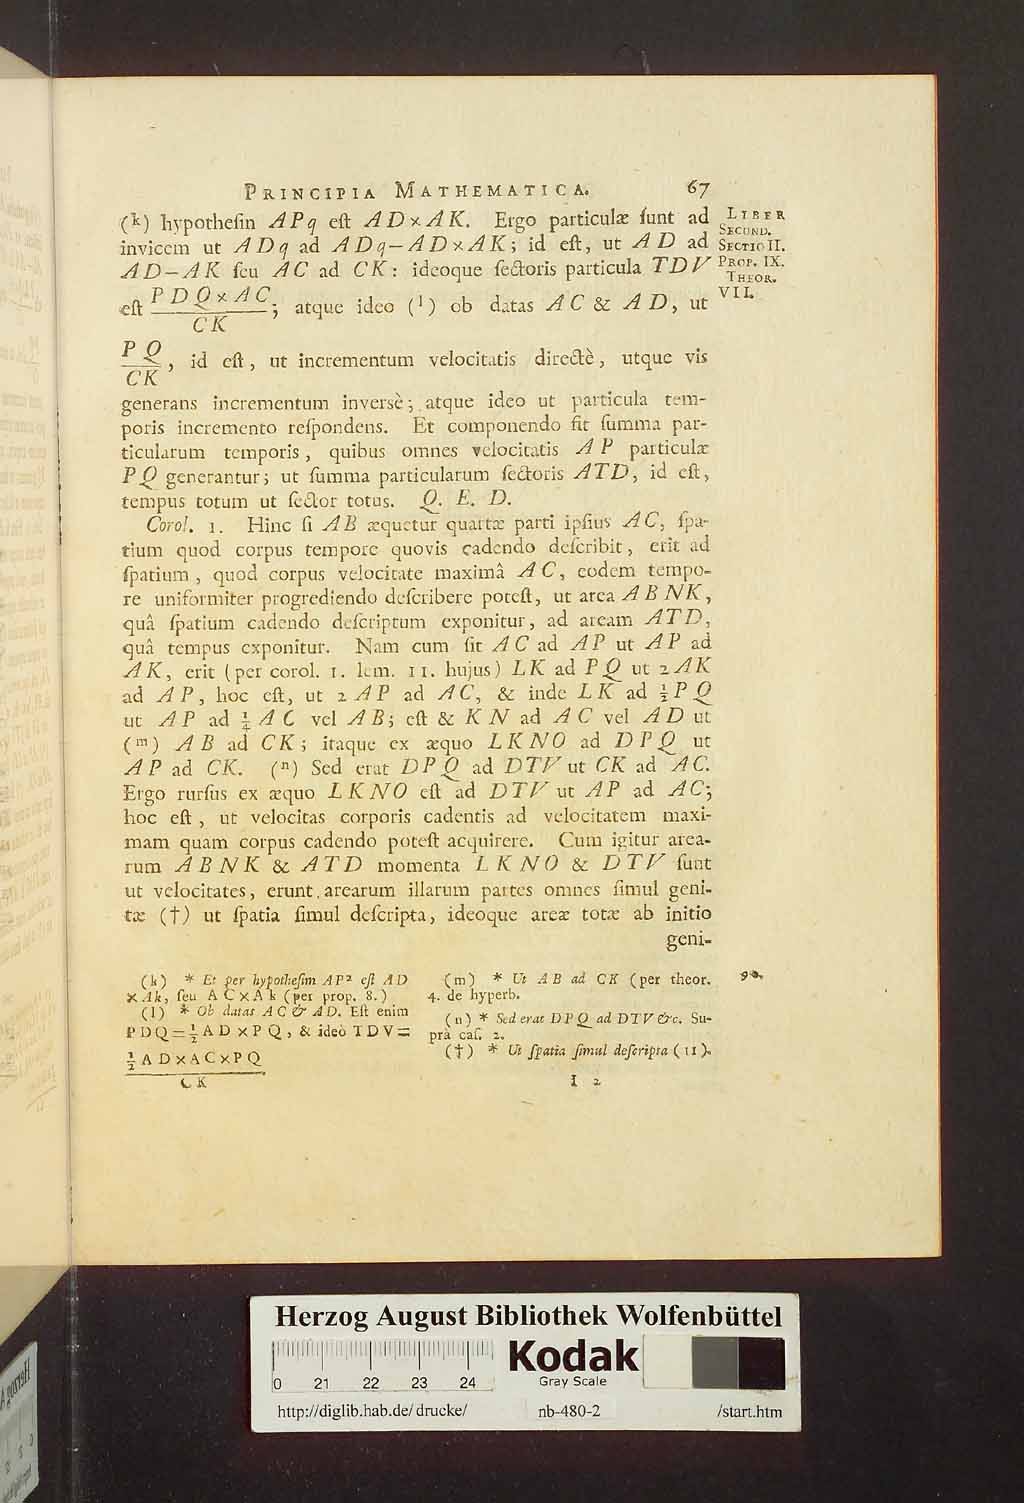 PRINCIPIA MATHEMATICA. 67
(k) hypothesin APq est AD×AK. Ergo particulæ sunt ad
invicem ut ADq ad ADq−AD×AK; id est, ut AD ad
AD−AK seu AC ad CK: ideoque sectoris particula TDV
est PDQ×AC/CK; atque ideo (l) ob datas AC & AD, ut
PQ/CK, id est, ut incrementum velocitatis directè, utque vis
generans incrementum inversè; atque ideo ut particula tem-
poris incremento respondens. Et componendo fit summa par-
ticularum temporis, quibus omnes velocitatis AP particulæ
PQ generantur; ut summa particularum sectoris ATD, id est,
tempus totum ut sector totus. Q. E. D.
Corol. 1. Hinc si AB æquetur quartæ parti ipsius AC, spa-
tium quod corpus tempore quovis cadendo describit, erit ad
spatium, quod corpus velocitate maximâ AC, eodem tempo-
re uniformiter progrediendo describere potest, ut area ABNK,
quâ spatium cadendo descriptum exponitur, ad aream ATD,
quâ tempus exponitur. Nam cum sit AC ad AP ut AP ad
AK, erit (per corol. 1. lem. 11. hujus) LK ad PQ ut 2AK
ad AP, hoc est, ut 2AP ad AC, & inde LK ad ½PQ
ut AP ad ¼AC vel AB; est & KN ad AC vel AD ut
(m) AB ad CK; itaque ex æquo LKNO ad DPQ ut
AP ad CK. (n) Sed erat DPQ ad DTV ut CK ad AC.
Ergo rursus ex æquo LKNO est ad DTV ut AP ad AC;
hoc est, ut velocitas corporis cadentis ad velocitatem maxi-
mam quam corpus cadendo potest acquirere. Cum igitur area-
rum ABNK & ATD momenta LKNO & DTV sunt
ut velocitates, erunt arearum illarum partes omnes simul geni-
tæ (†) ut spatia simul descripta, ideoque areæ totæ ab initio
geni-
LIBER
SECUND.
SECTIO II.
PROP. IX.
THEOR.
VII.
(k) * Et per hypothesim AP² est AD
× Ak, seu AC×Ak (per prop. 8.)
(l) * Ob datas AC & AD. Est enim
PDQ=½AD×PQ, & ideò TDV=
½AD×AC×PQ
CK
(m) * Ut AB ad CK (per theor.
4. de hyperb.
(n) * Sed erat DPQ ad DTV &c. Su-
prà cas. 2.
(†) * Ut spatia simul descripta (11).
I 2
Herzog August Bibliothek Wolfenbüttel
Kodak
Gray Scale
0 21 22 23 24
http://diglib.hab.de/drucke/ nb-480-2 /start.htm